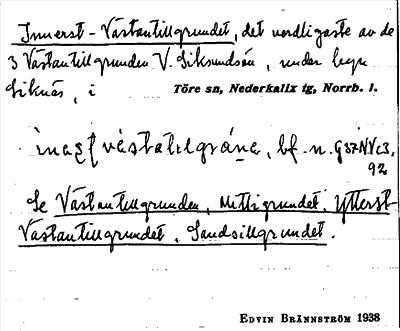 Innerst-Västantillgrundet, det nordligaste av de
3 Västantillgrunden V. Siksundsön, under byn
Siknäs, i Töre sn, Nederkalix tg, Norrb. l.
västatɩlgrána, bf. n. G37NV c3,
92
Se Västantillgrunden, Mittigrundet, Ytterst-
Västantillgrundet, Sandsillgrundet.
EDVIN BRÄNNSTRÖM 1938